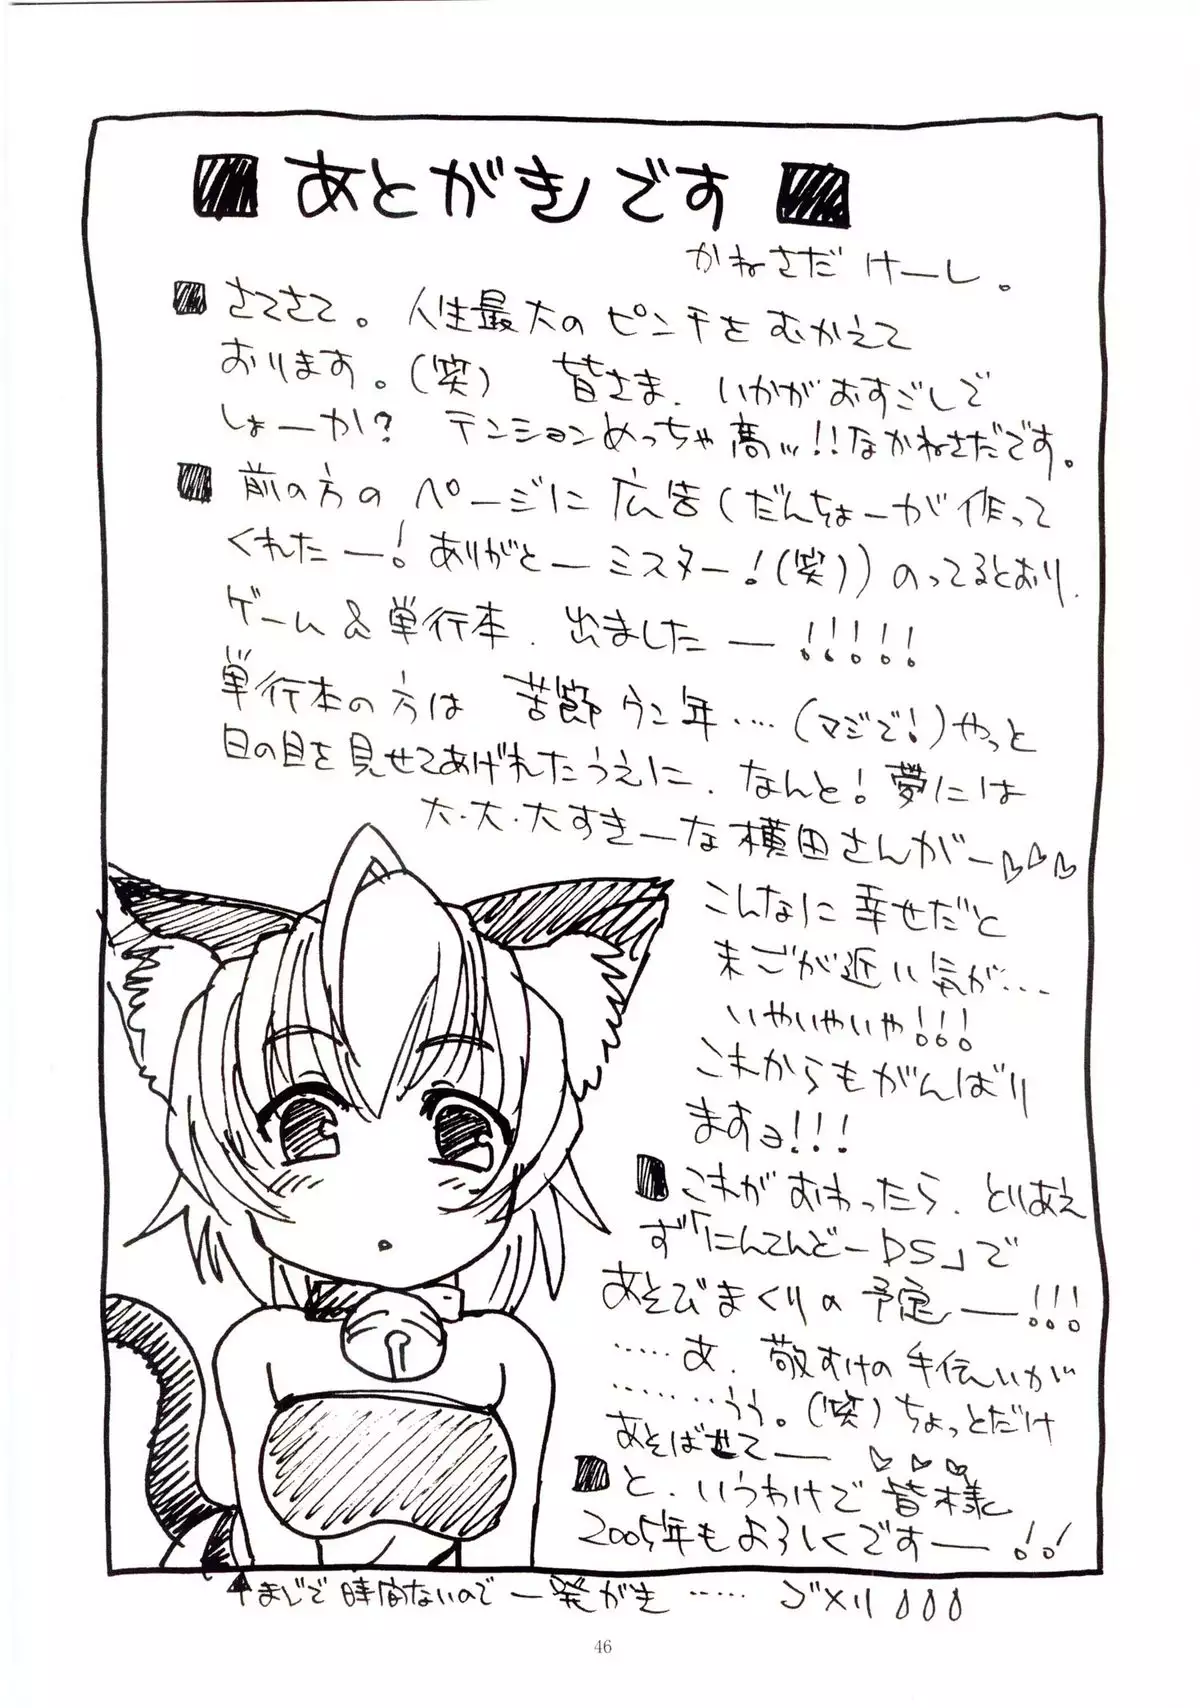 ■ あとがきです ■
かねさだ けーし。
■ さてさて。人生最大のピンチをむかえて
おります。(笑) 皆さま、いかがおすごしで
しょーか? テンションめっちゃ高ッ!!なかねさだです。
■ 前の方のページに広告(だんちょーが作って
くれたー!ありがとーミスター!(笑))のってるとおり、
ゲーム&単行本、出ましたー!!!!!
単行本の方は苦節ウン年‥‥(マジで!)やっと
日の目を見せてあげれたうえに、なんと!夢には
大・大・大すきーな横田さんがー♡♡♡
こんなに幸せだと
まごが近い気が‥‥
いやいやいや!!!
これからもがんばり
ますョ!!!
■ これがおわったら、とりあえ
ず「にんてんどーDS」で
あそびまくりの予定ー!!!
‥‥‥あ、敬すけの手伝いが
‥‥‥‥うう。(笑)ちょっとだけ
あそばせてー♡♡♡
■ と、いうわけで皆様
2005年もよろしくですー!!
↑まじで時間ないので一発がき‥‥‥ゴメリ
46